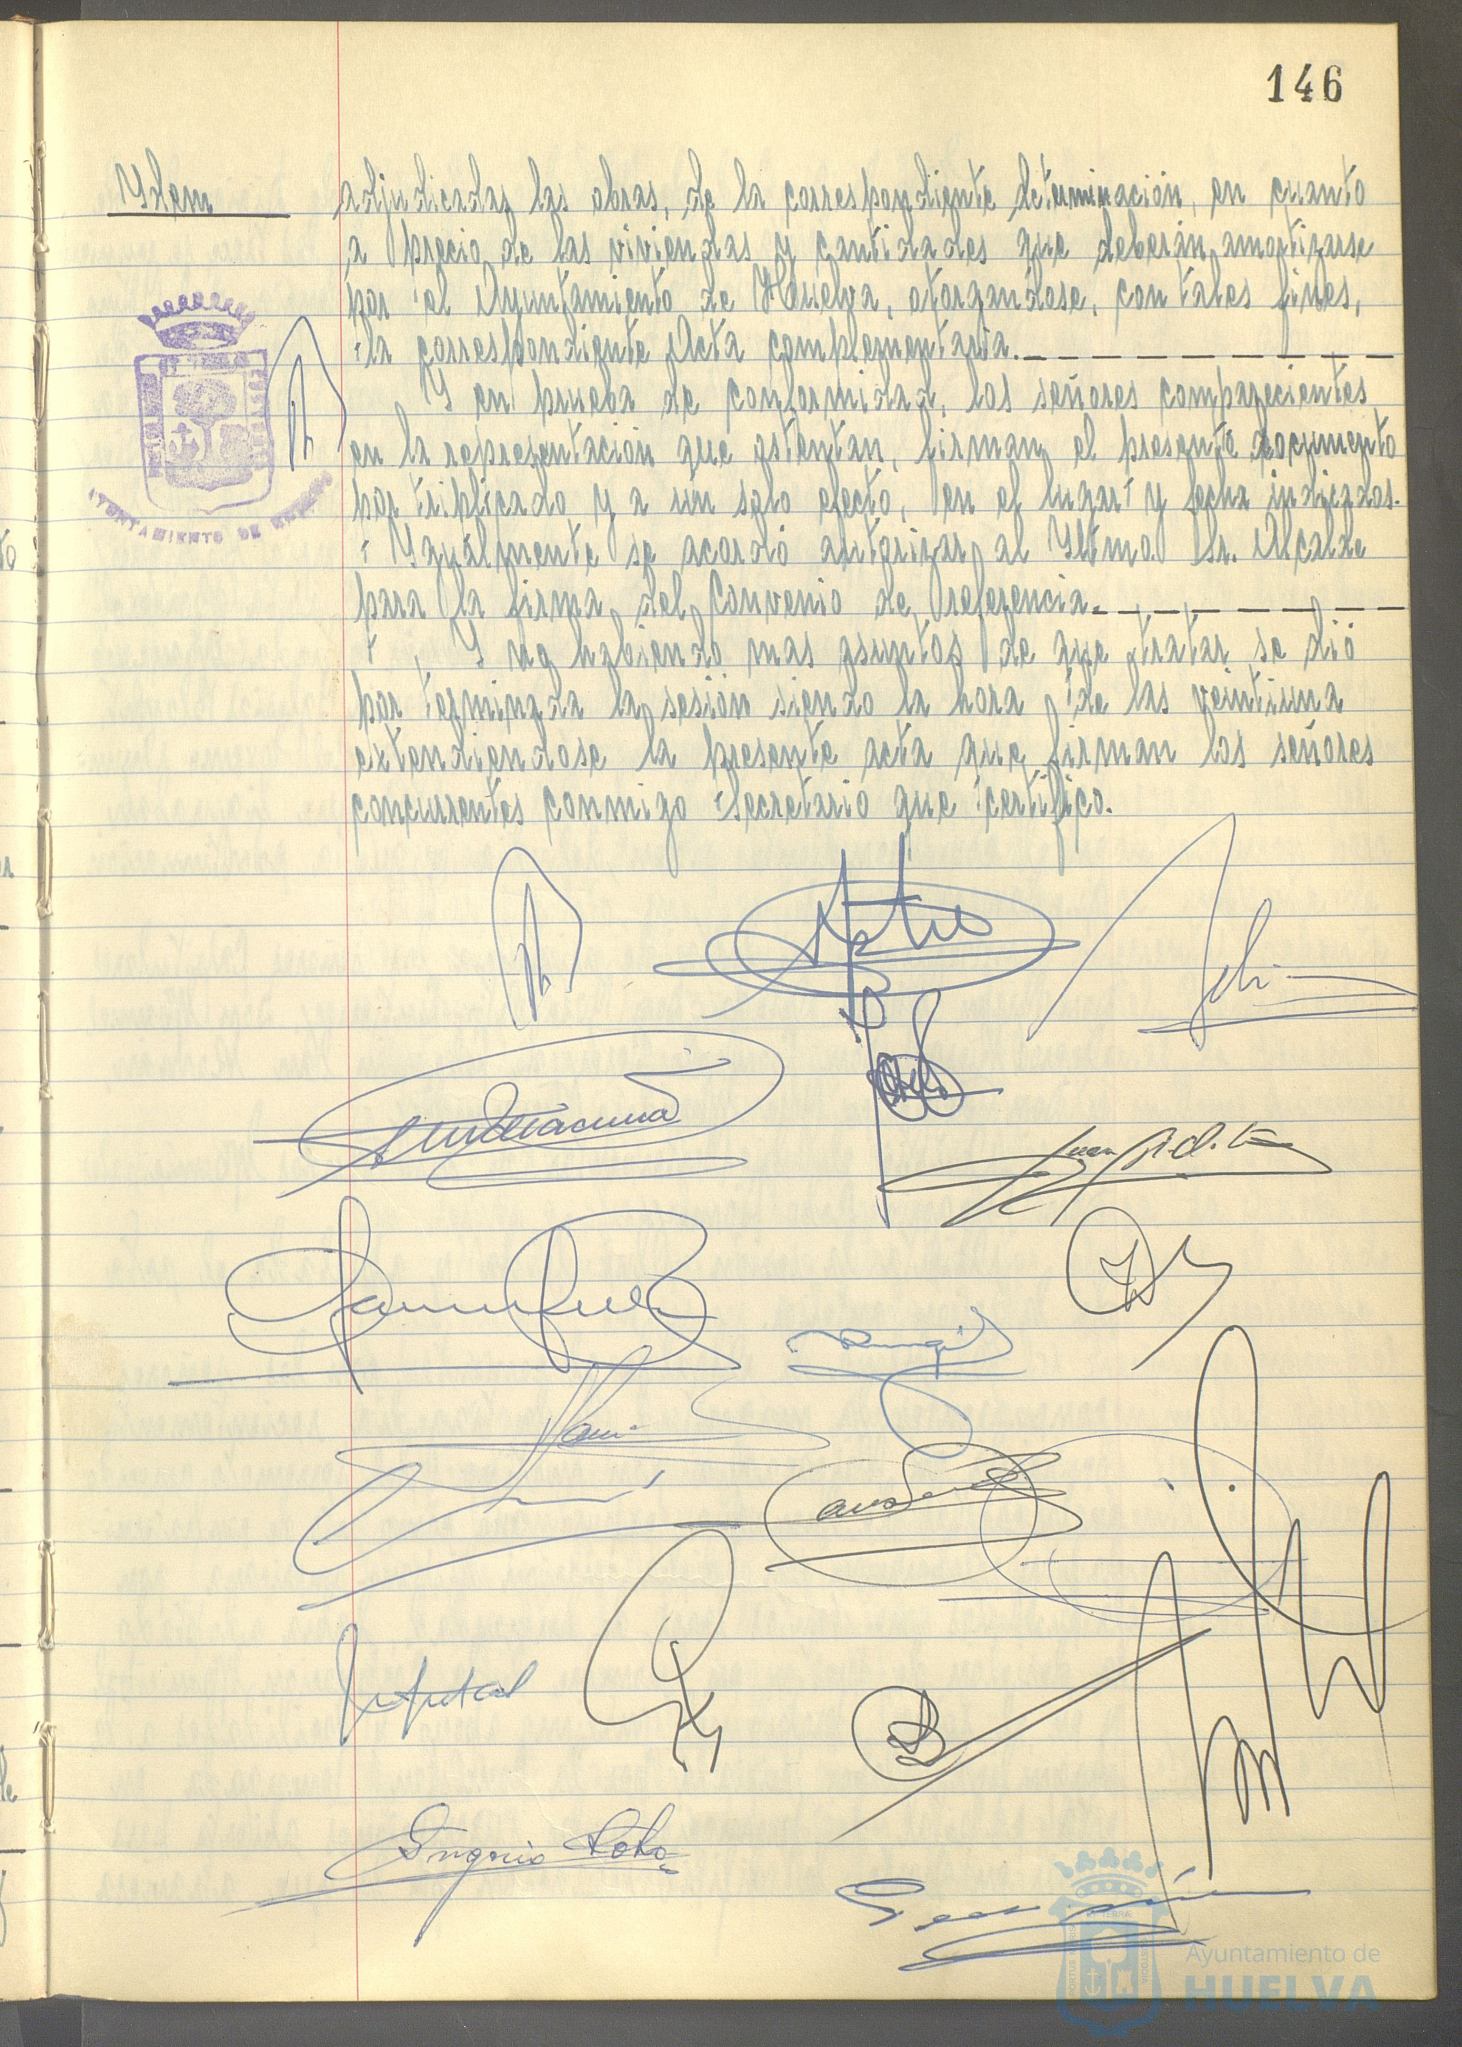 146
Ydem
adjudicadas las obras, de la correspondiente determinación, en cuanto
a precio de las viviendas y cantidades que deberán amortizarse
por el Ayuntamiento de Huelva, otorgandose, con tales fines,
la correspondiente Acta complementaria.
Y en prueba de conformidad, los señores comparecientes
en la representación que ostentan, firman el presente documento
por triplicado y a un solo efecto, en el lugar y fecha indicados.
Ygualmente se acordó autorizar al Yltmo. Sr. Alcalde
para la firma del Convenio de referencia.
Y no habiendo mas asuntos de que tratar se dió
por terminada la sesión siendo la hora de las veintiuna
extendiendose la presente acta que firman los señores
concurrentes conmigo Secretario que certifico.
AYUNTAMIENTO DE
Juan
Ayuntamiento de
HUELVA